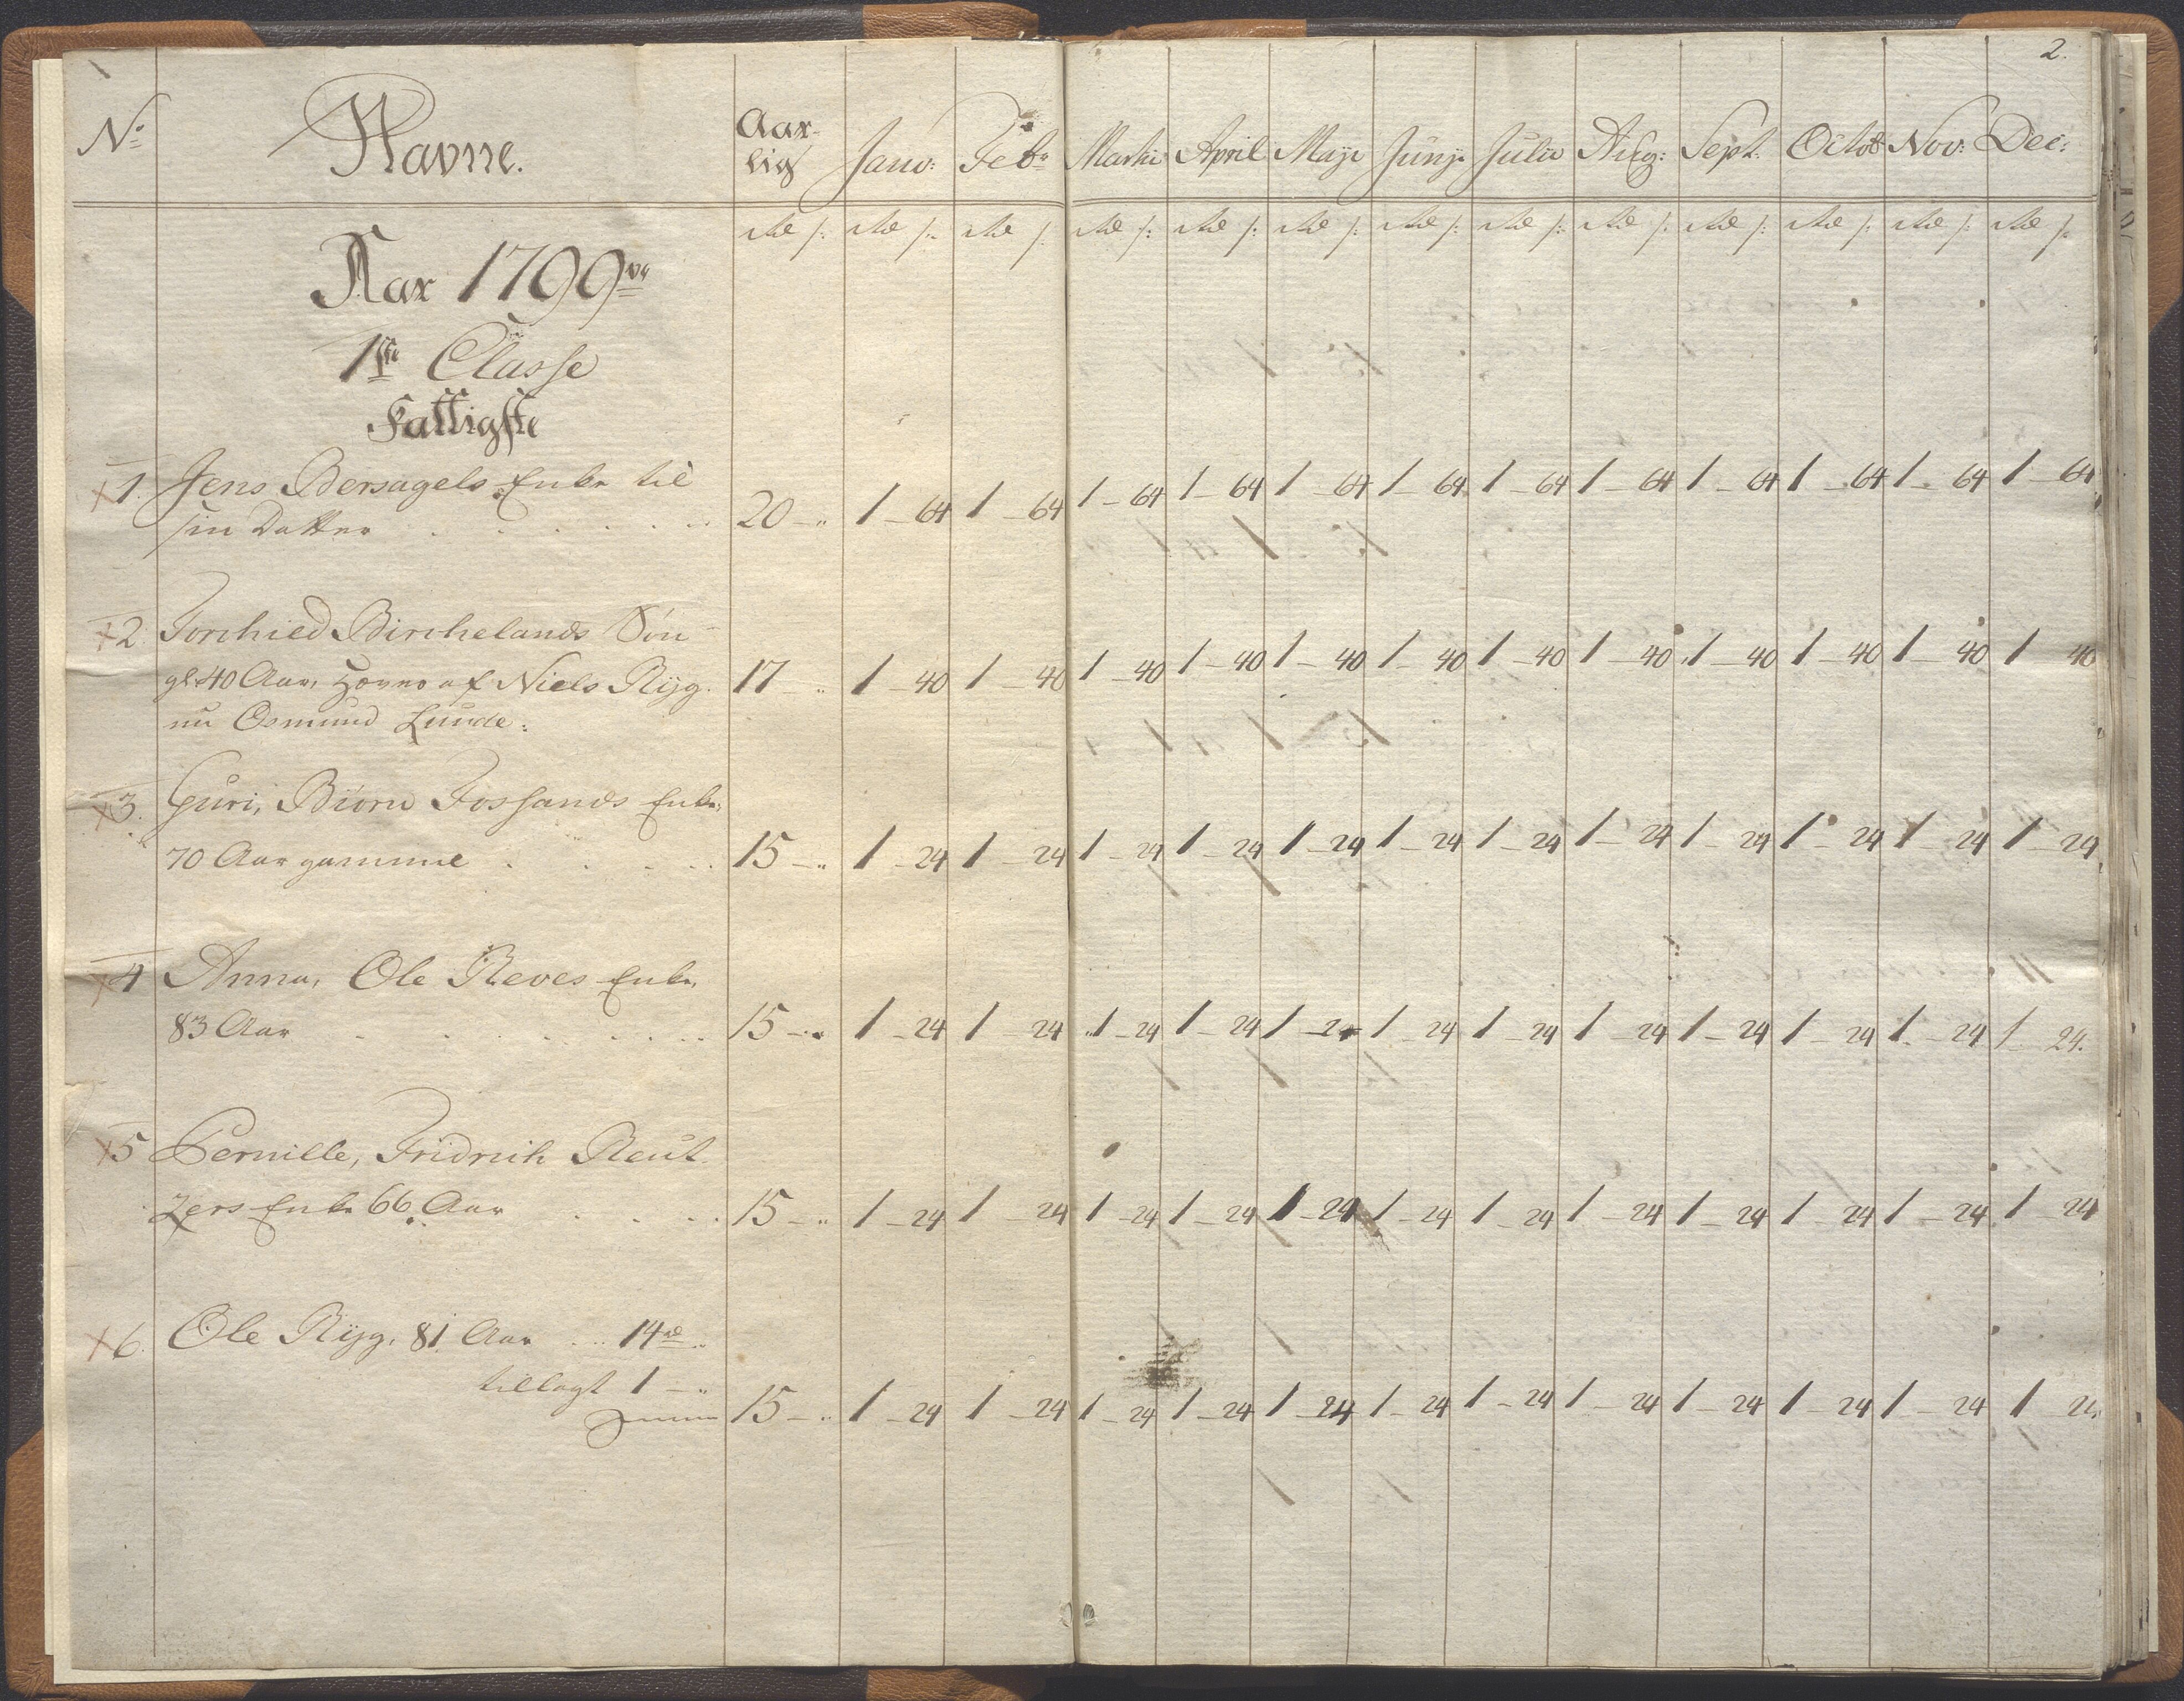 2.
No Navne. Aar- lig Janv: Febr Martii April Maji Junji Julii Aug: Sept: Octob Nov: Dec:
Rd s: Rd s: Rd s: Rd s: Rd s: Rd s: Rd s: Rd s: Rd s: Rd s: Rd s: Rd s: Rd s:
Aar 1799
1ste Classe
Fattigste
1. Jens Bersagels Enke til
sin Datter 20 - " 1 - 64 1 - 64 1 - 64 1 - 64 1 - 64 1 - 64 1 - 64 1 - 64 1 - 64 1 - 64 1 - 64 1 - 64
2. Torchield Birchelands Søn
gl. 40 Aar, af Niels Rÿg. 17 " 1 - 40 1 - 40 1 - 40 1 - 40 1 - 40 1 - 40 1 - 40 1 - 40 1 - 40 1 - 40 1 - 40 1 40
nu Osmund Lunde.
3. Guri, Biørn Fossands Enke,
70 Aar gammel 15 - " 1 - 24 1 - 24 1 - 24 1 - 24 1 - 24 1 - 24 1 - 24 1 - 24 1 - 24 1 - 24 1 - 24 1 - 24
4 Anna, Ole Reves Enke,
83 Aar 15 - " 1 - 24 1 - 24 1 - 24 1 - 24 1 - 24 1 - 24 1 - 24 1 - 24 1 - 24 1 - 24 1 - 24 1 - 24.
5 Pernille, Fridrich Reut
zers Enke 66 Aar 15 - " 1 - 24 1 - 24 1 - 24 1 - 24 1 - 24 1 - 24 1 - 24 1 - 24 1 - 24 1 24 1 - 24 1 24
6. Ole Rÿg. 81 Aar 14 rd "
tillagt 1 - "
15 - " 1 - 24 1 - 24 1 - 24 1 - 24 1 - 24 1 - 24 1 - 24 1 - 24 1 - 24 1 - 24 1 - 24 1 24